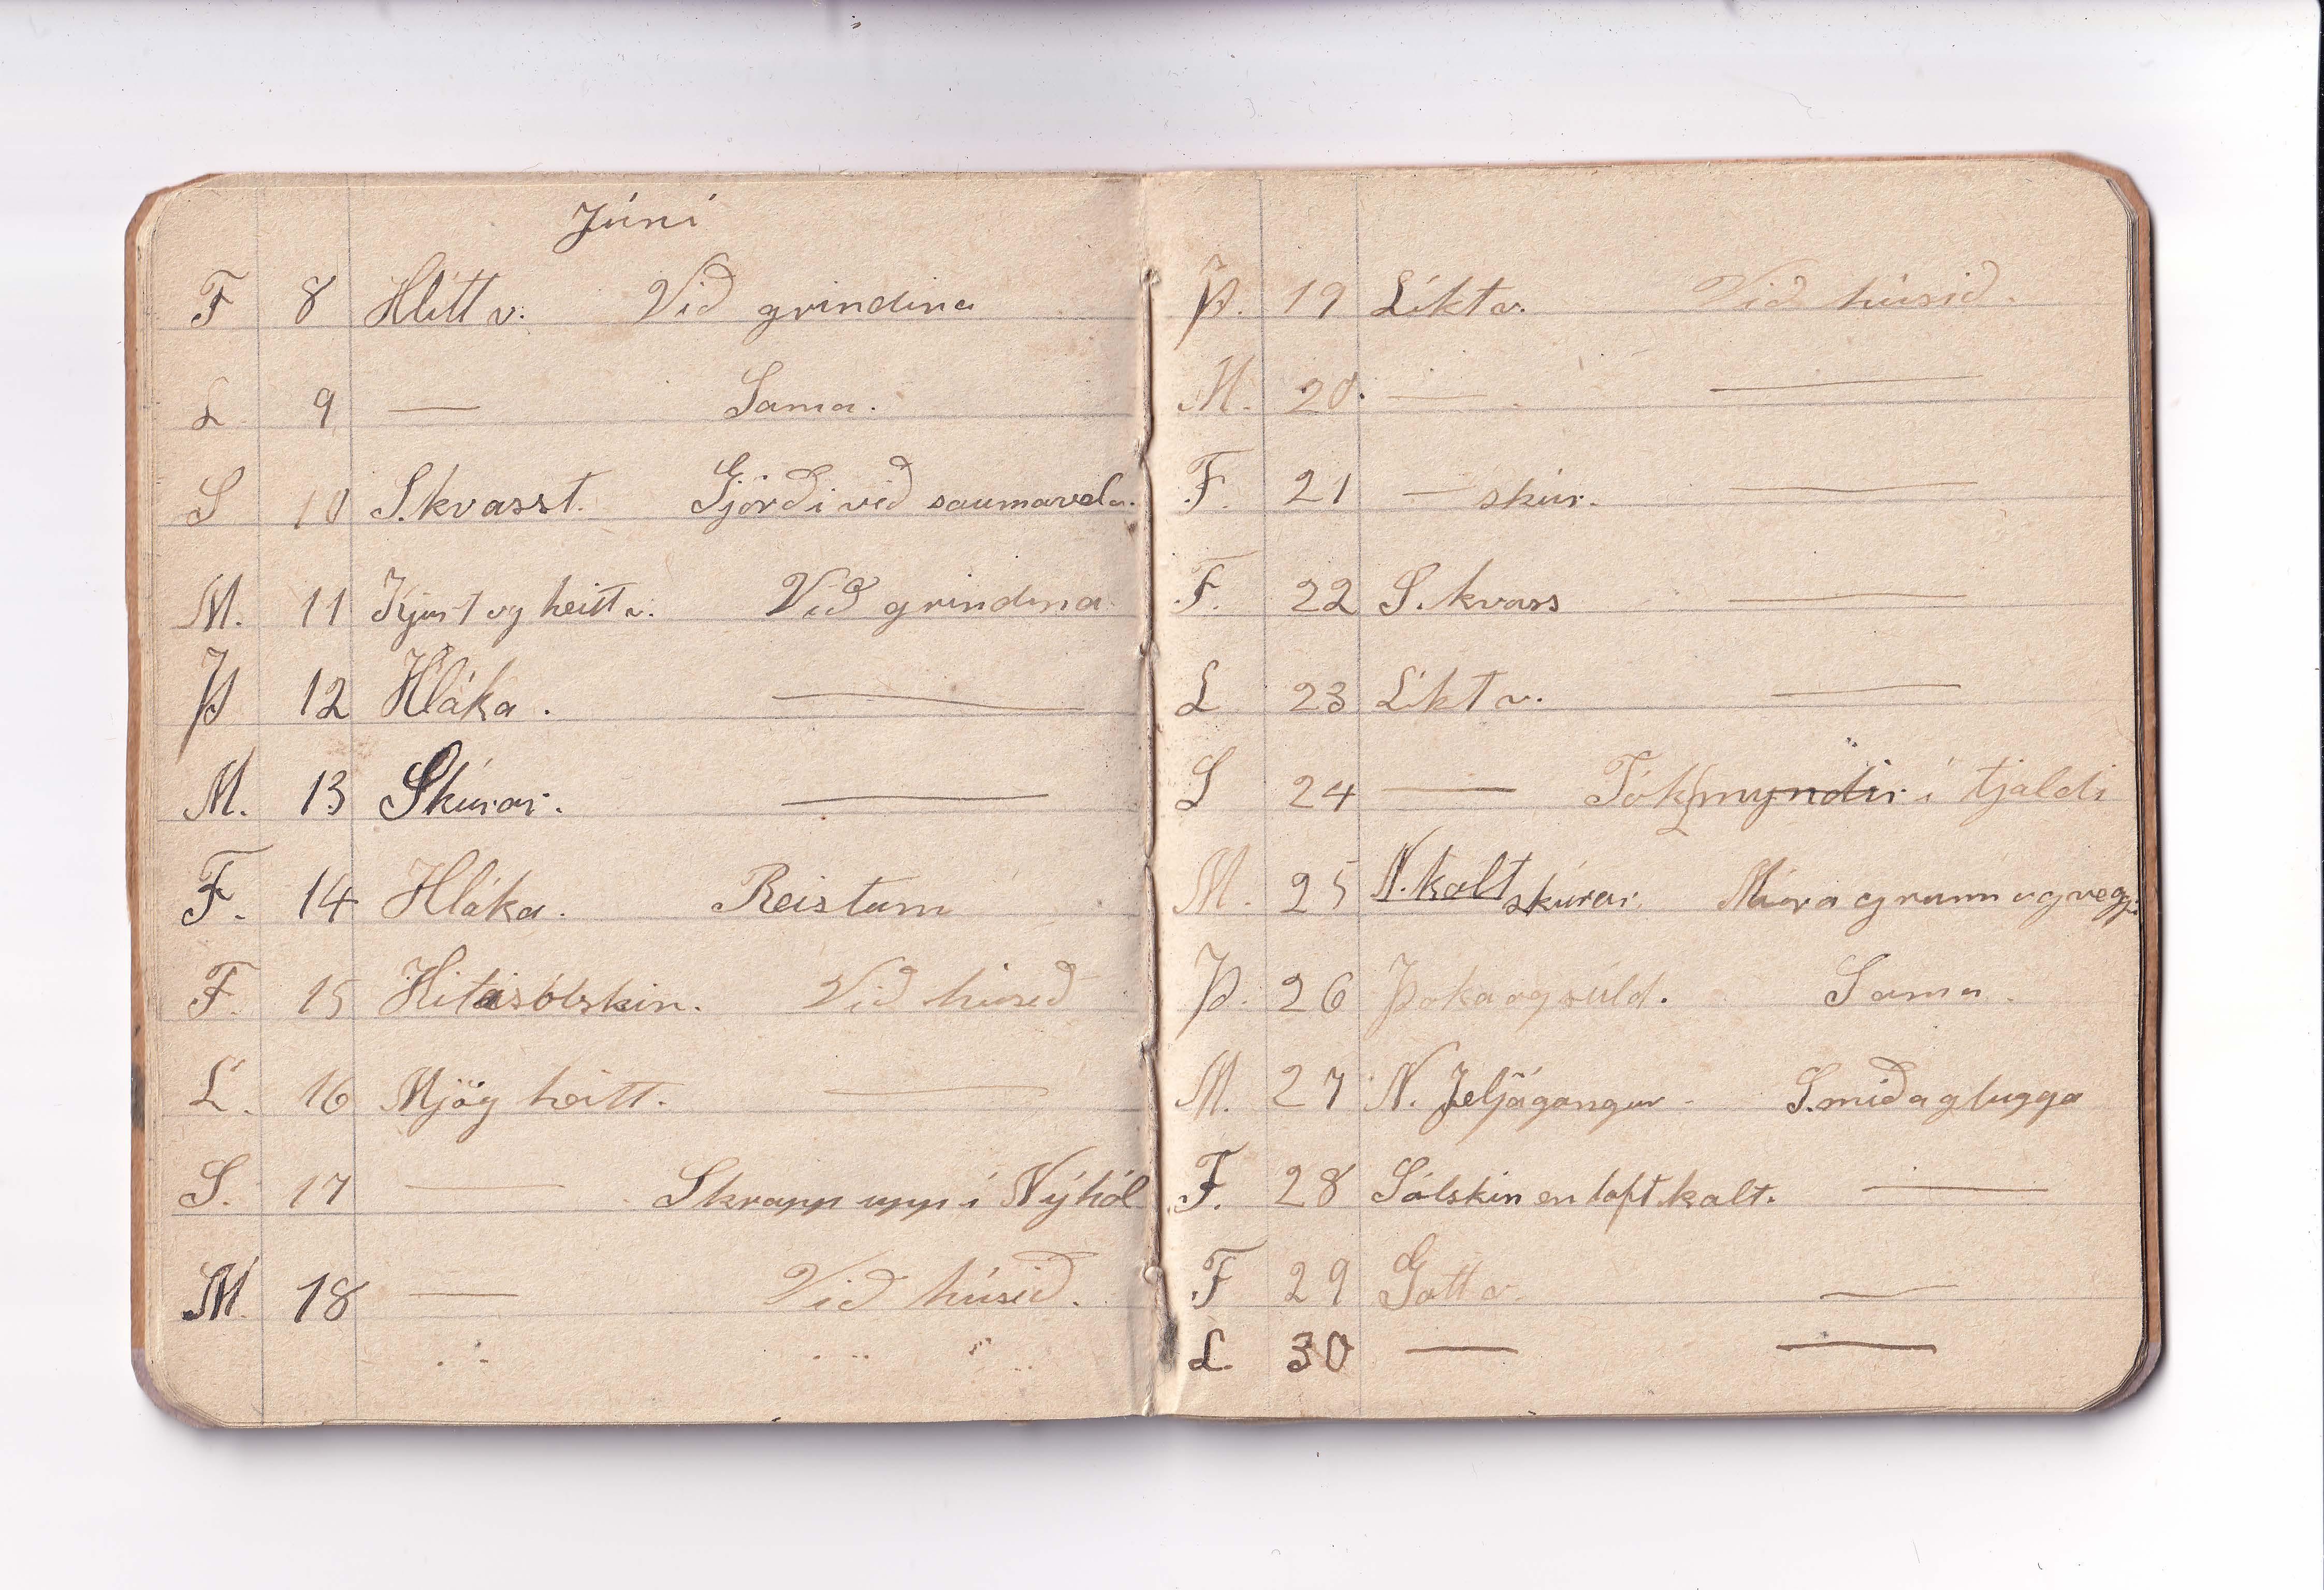 Júní
F 8 Hlítt v. Við grindina
L 9 — Sama.
S 10 S. kvasst. Gjörði við saumavela.
M. 11 Kjurt og heitt v. Við grindina
Þ 12 Hláka. —
M. 13 Skúrar. —
F. 14 Hláka. Reistum
F. 15 Hitasólskin. Við húsið
L. 16 Mjög heitt. —
S. 17 — Skrapp upp í Nýhól
M. 18 — Við húsið.
Þ. 19 Líkt v. Við húsið.
M. 20. — —
F. 21 — skúr. —
F. 22 S. kvass —
L 23 Líkt v. —
S 24 — Tók myndir í tjaldi
M. 25 N. kalt skúrar. Múra grunn og veggi
Þ. 26 Þoka og súld. Sama.
M. 27 N. Jeljágangur - Smíða glugga
F. 28 Sólskin en loft kalt. —
F 29 Gott v. —
L 30 — —